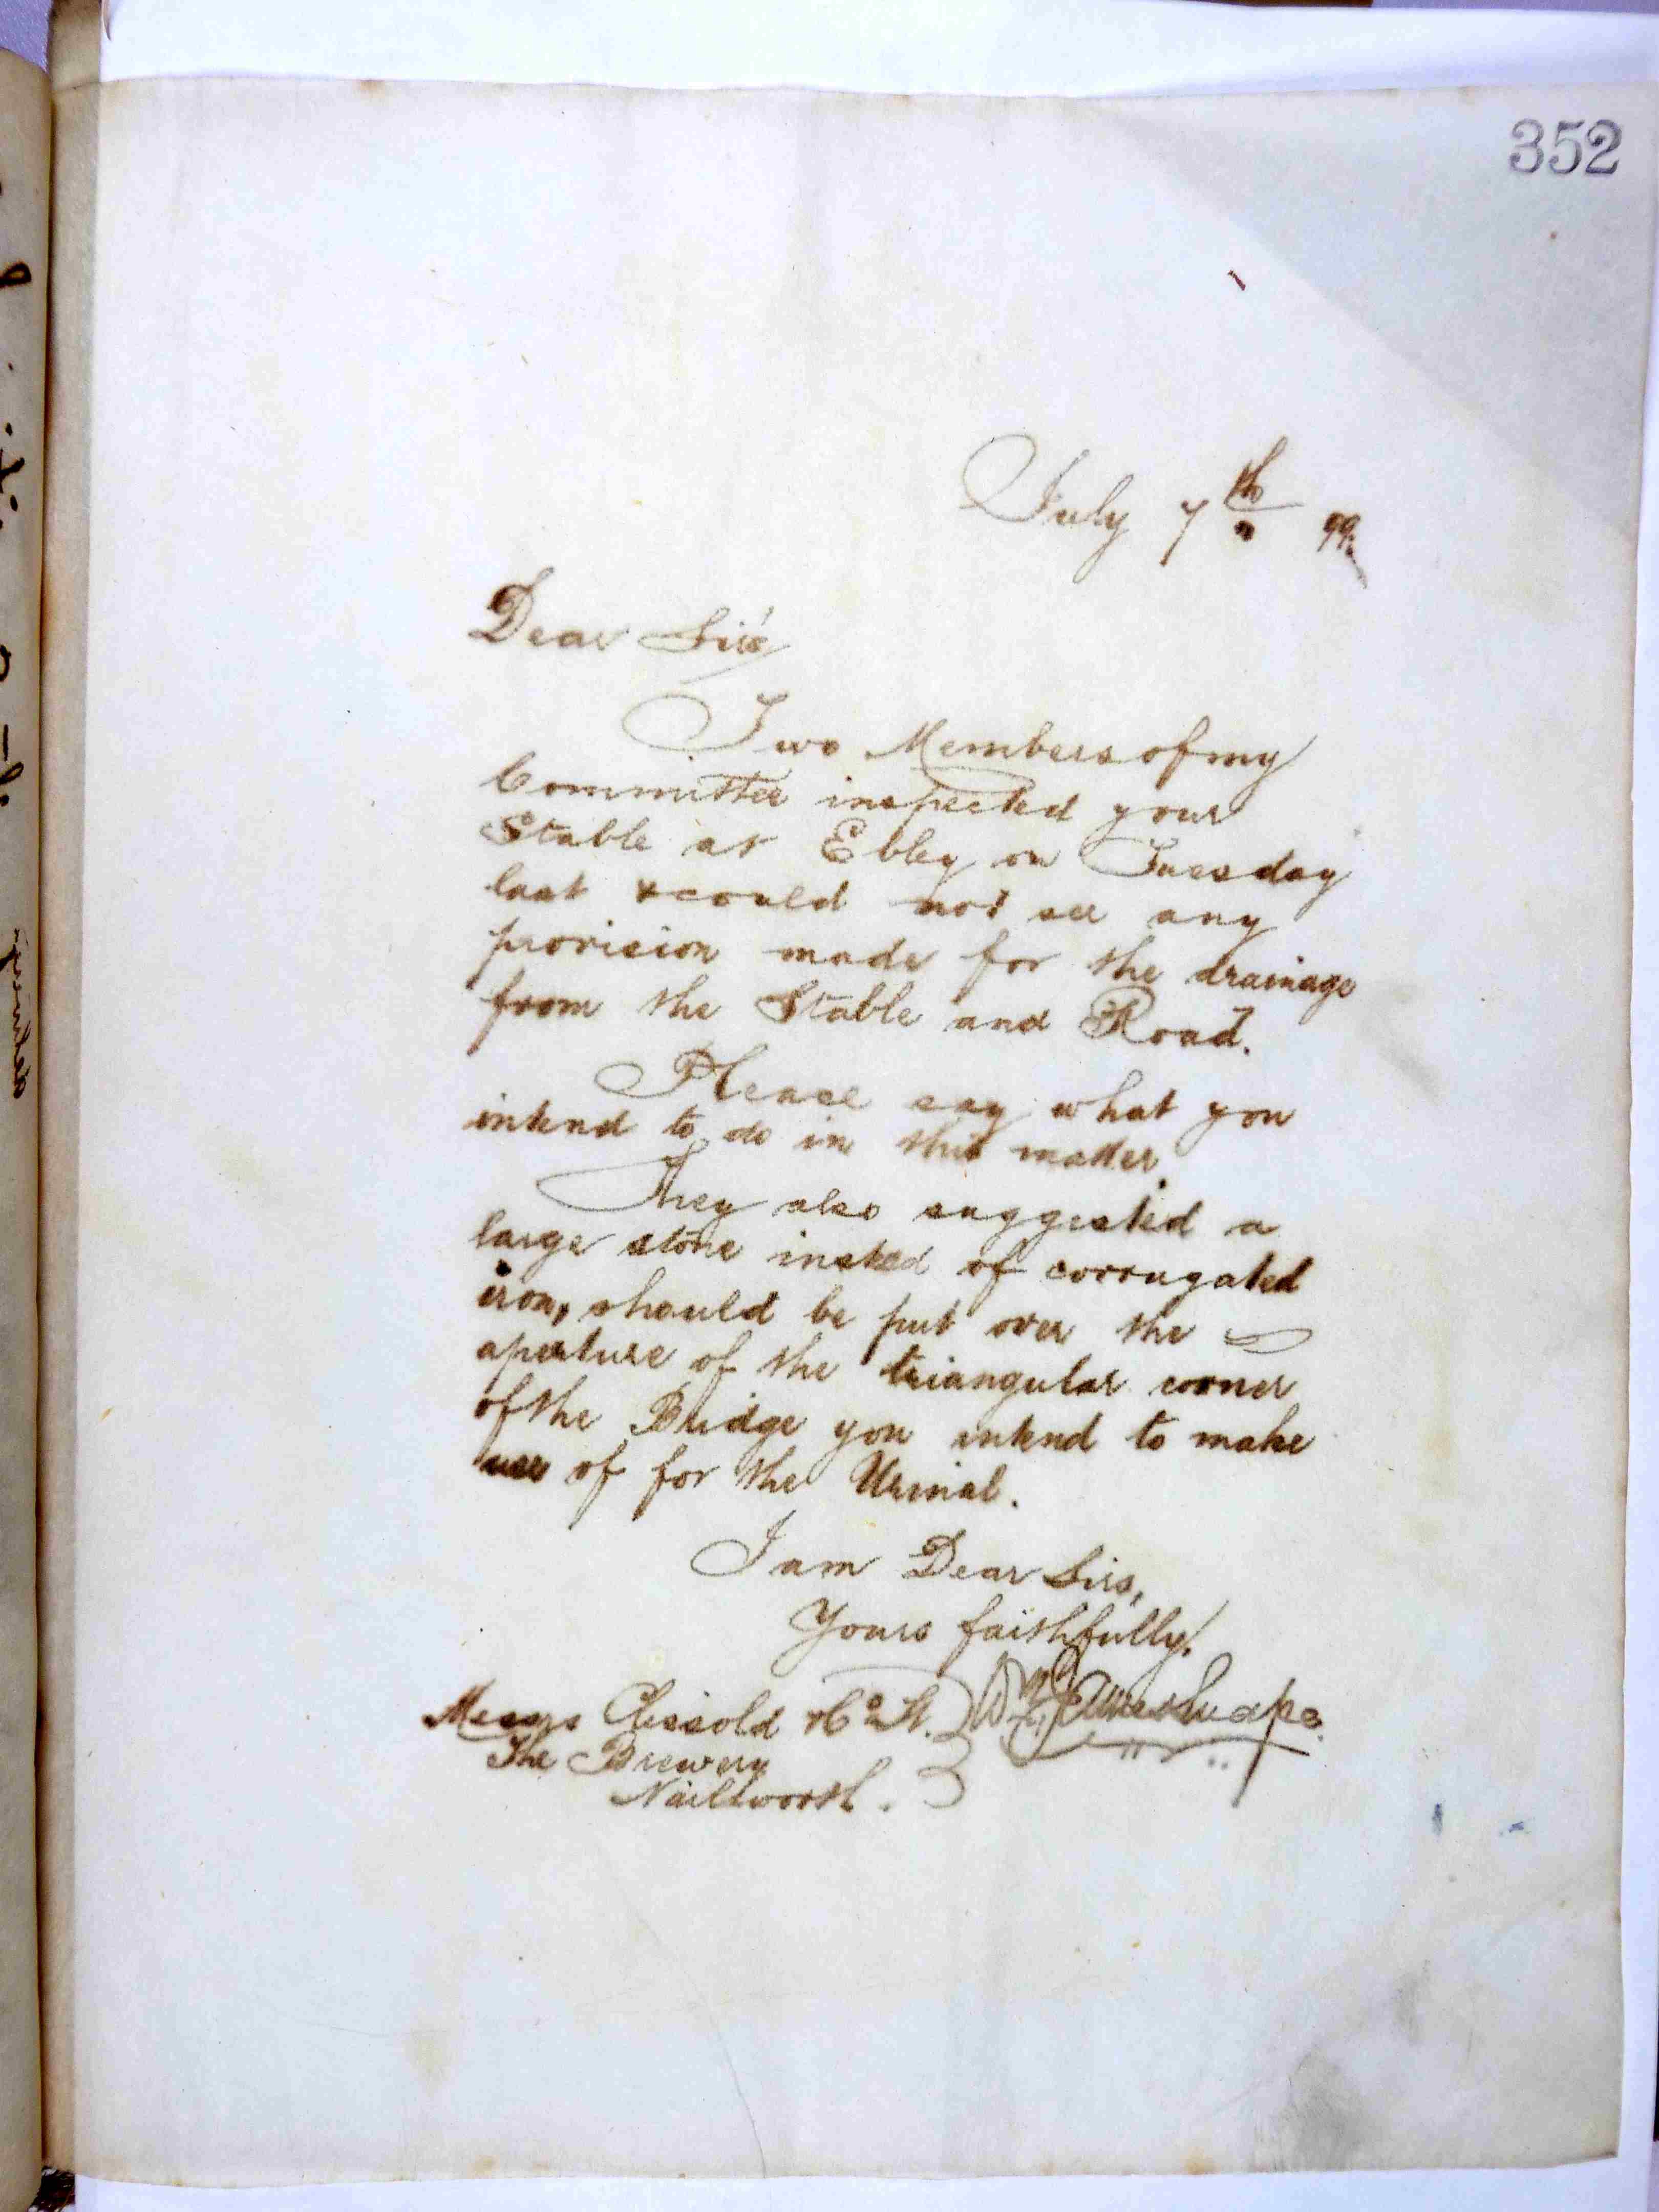 352
July 7th 99.
Dear Sirs
Two Members of my
Committee inspected your
Stable at Ebley on Tuesday
last & could not see any
provision made for the drainage
from the Stable and Road.
Please say what you
intend to do in this matter.
They also suggested a
large stone instead of corrugated
iron, should be put over the
aperture of the triangular corner
of the Bridge you intend to make
use of for the Urinal.
I am Dear Sirs,
Yours faithfully.
Messrs Clissold & Co Lt.
The Brewery
Nailsworth.